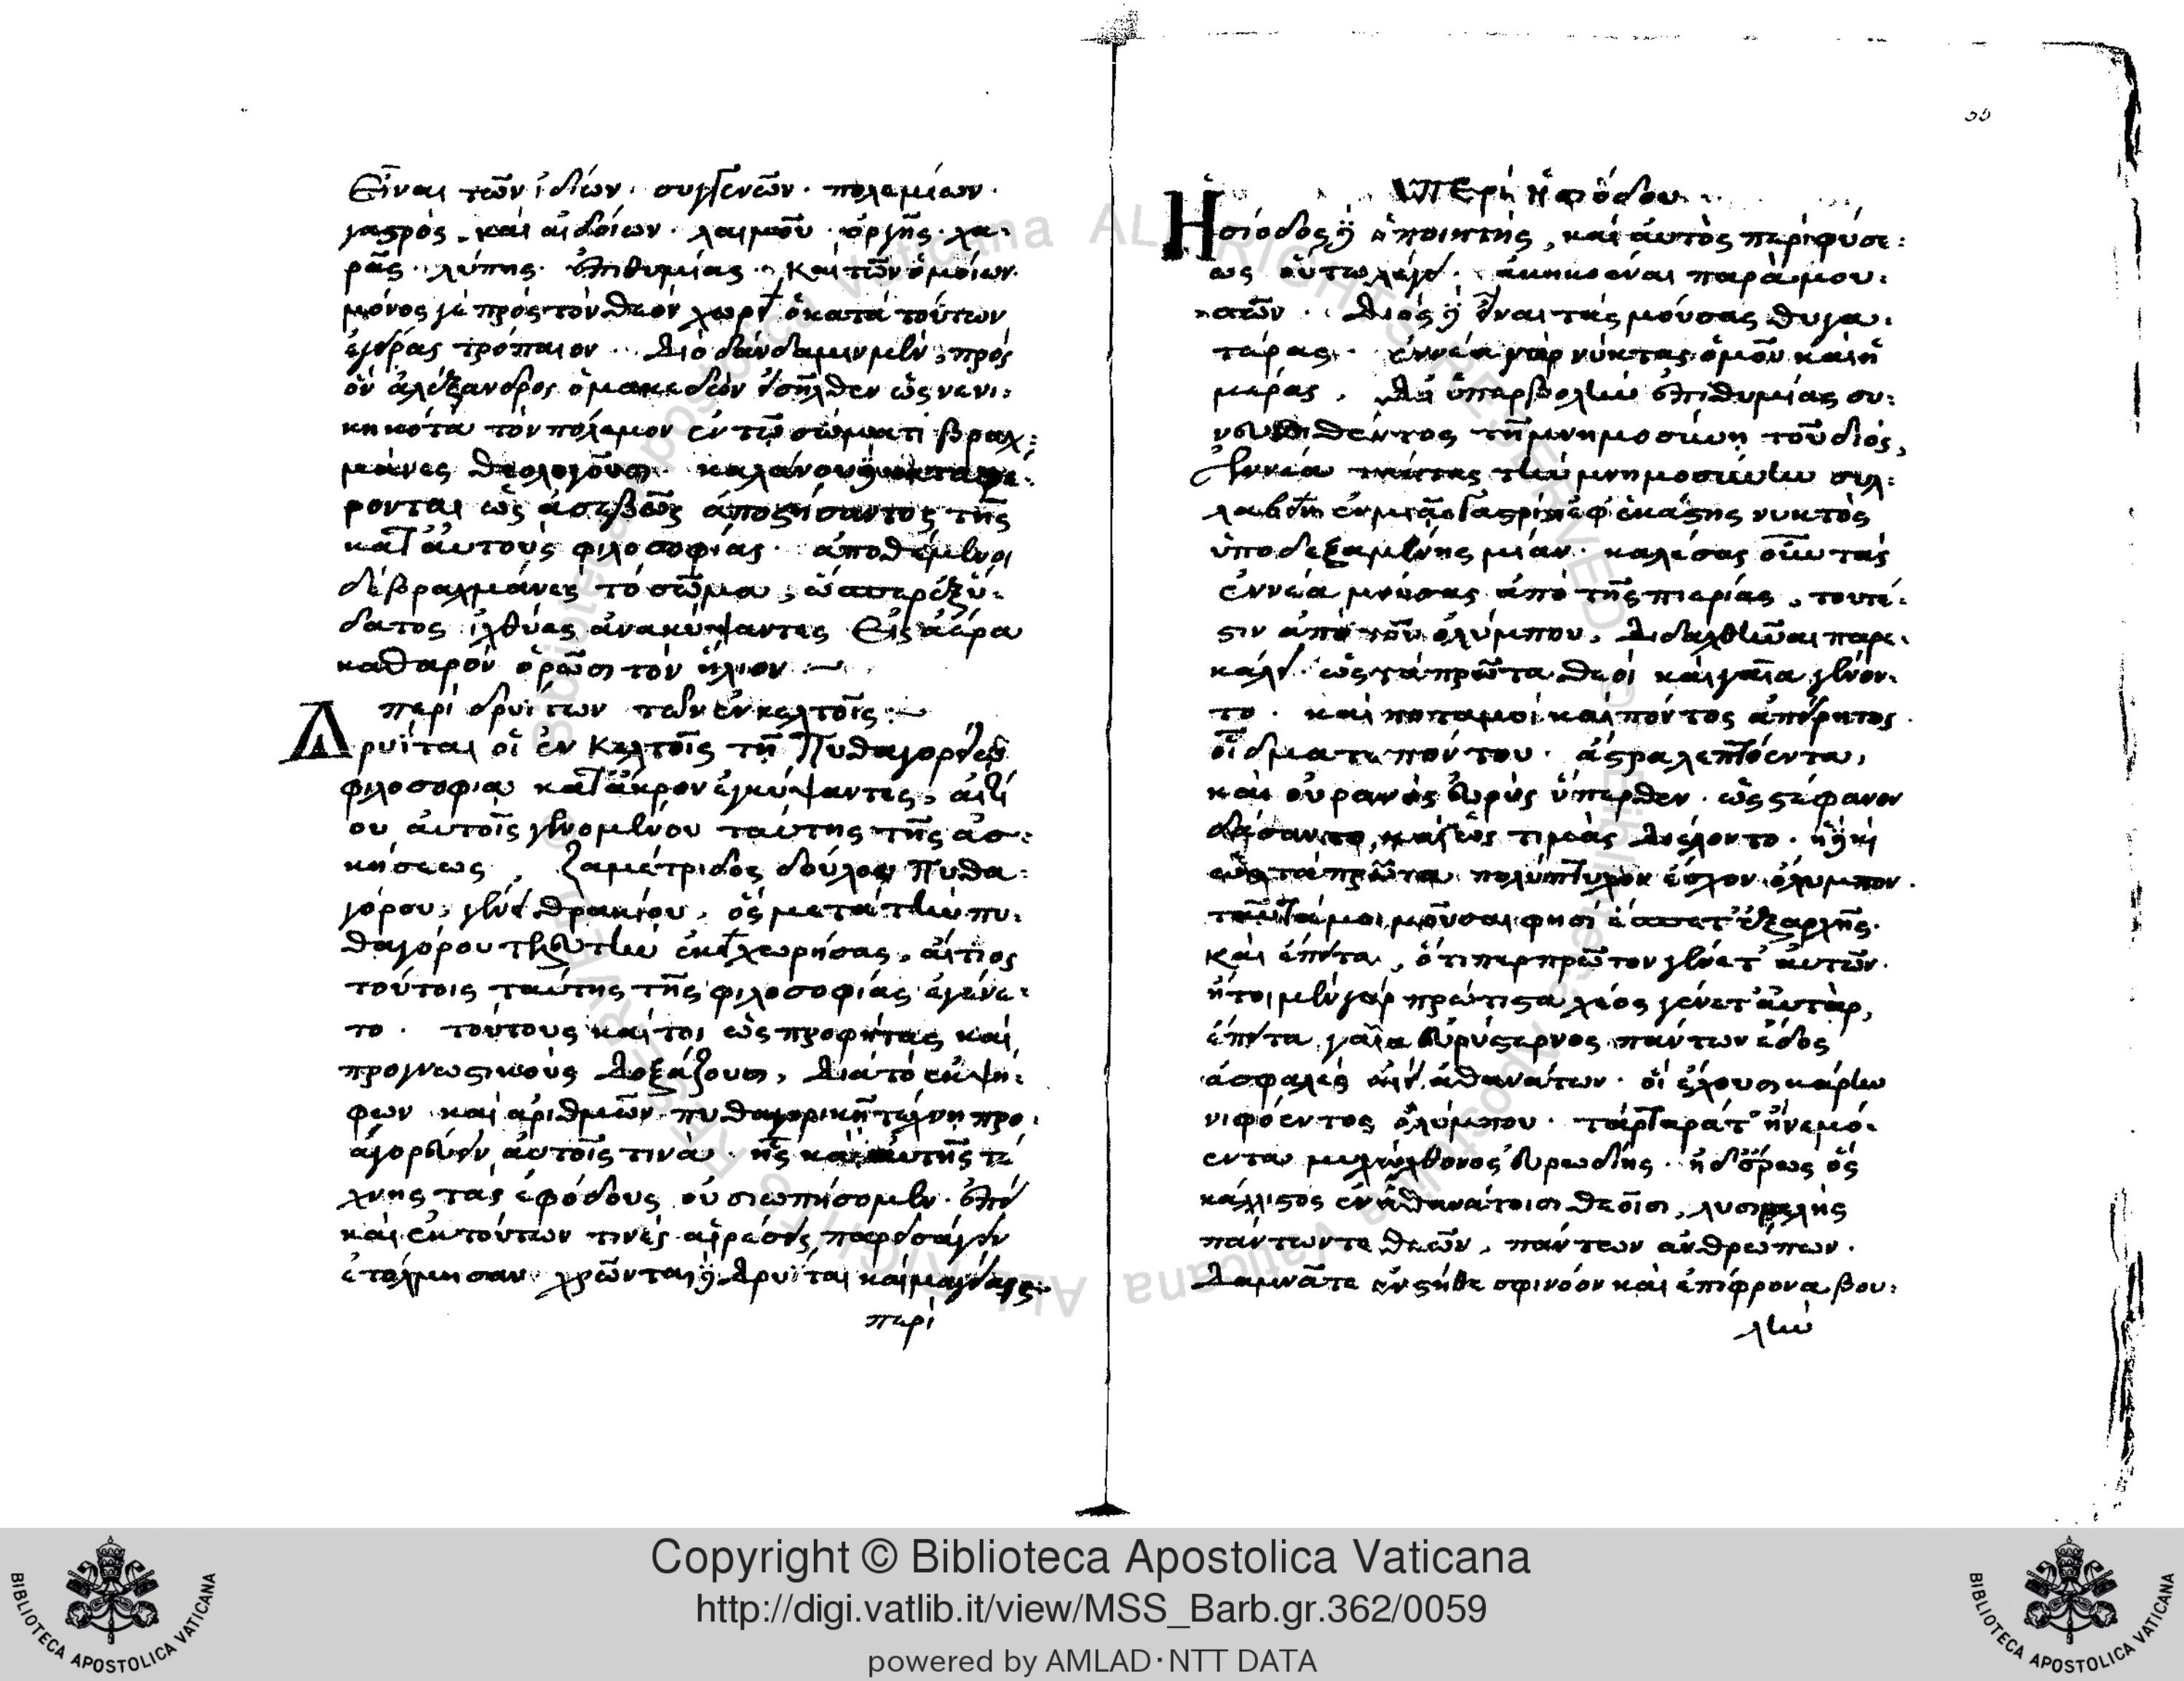 Εἶναι τῶν ἰδίων· συγγενῶν· πολεμίων·
γαστρὸς· καὶ αἰδοίων· λαιμοῦ· ὀργῆς· χα-
ρᾶς· λύπης· ἐπιθυμίας· καὶ τῶν ὁμοίων·
μόνος γὲ πρὸς τὸν θεὸν χωρεῖ ὁ κατὰ τούτων
ἐγείρας τρόπαιον· Διὸ δάνδαμιν μὲν, πρὸς
ὃν ἀλέξανδρος ὁ μακεδὼν εἰσῆλθεν ὡς νενι-
κηκότα τὸν πόλεμον ἐν τῷ σώματι βραχ-
μάνες θεολογοῦσι· καλάνου δὲ καταφέ-
ρονται ὡς ἀσεβῶς ἀποζήσαντος τῆς
κατ' αὐτοὺς φιλοσοφίας· ἀποθέμενοι
δὲ βραχμάνες τὸ σῶμα, ὥσπερ ἐξ ὕ-
δατος ἰχθύες ἀνακύψαντες Εἰς ἀέρα
καθαρὸν ὁρῶσι τὸν ἥλιον
περὶ δρυϊτων τῶν ἐν κελτοῖς:
Δρυΐται οἱ ἐν Κελτοῖς τῇ Πυθαγορείῳ
φιλοσοφία κατ' ἄκρον ἐγκύψαντες, αἰτί
ου αὐτοῖς γενομένου ταύτης τῆς ἀσ-
κήσεως, ζαμέτριδος δούλου Πυθα-
γόρου, γένει θρακίου, ὃς μετὰ τὴν πυ-
θαγόρου τελευτὴν ἐκεῖ χωρήσας, αἴτιος
τούτοις ταύτης τῆς φιλοσοφίας ἐγένε-
το· τούτους καί τοι ὡς προφήτας καὶ
προγνωστικοὺς Δοξάζουσι, Διὰ τὸ ἐκ ψή-
φων καὶ ἀριθμῶν πυθαγορικῇ τέχνῃ προ-
αγορεύειν αὐτοῖς τινὰ· ἧς καὶ αὐτῆς τέ
χνης τὰς ἐφόδους οὐ σιωπήσομεν· ἐπεὶ
καὶ ἐκ τούτων τινὲς αἱρέσεις παρεισάγειν
ἐτόλμησαν· χρῶνται δὲ Δρυΐται καὶ μαγείαις·
περὶ
Ἡσίοδος δὲ ὁ ποιητὴς, καὶ αὐτὸς περὶ φύσε-
ως οὕτω λέγει· ἀκηκοέναι παρὰ μου-
σῶν· Διὸς δὲ εἶναι τὰς μούσας θυγα-
τέρας· ἐννέα γὰρ νύκτας ὁμοῦ καὶ ἡ
μέρας, Δι' ὑπερβολὴν ἐπιθυμίας συ-
νευνηθέντος τῇ μνημοσύνῃ τοῦ διός,
ἐννέα ταύτας τὴν μνημοσύνην συλ-
λαβεῖν ἐν μιᾷ γαστρὶ ἐφ' ἑκάστης νυκτὸς
ὑποδεξαμένης μίαν· καλέσας οὖν τὰς
ἐννέα μούσας ἀπὸ τῆς πιερίας, τουτέ-
στιν ἀπὸ τοῦ ὀλύμπου, Διδαχθῆναι παρε-
κάλει· ὡς τὰ πρῶτα θεοὶ καὶ γαῖα γένον-
το· καὶ ποταμοὶ καὶ πόντος ἀπείρητος·
οἴδματι πόντου· ἄστρα λεπτόεντα,
καὶ οὐρανὸς εὐρὺς ὕπερθεν· ὡς στέφανον
δάσαντο, καὶ ὡς τιμὰς Διέλοντο· ἠδὲ καὶ
ὡς τὰ πρῶτα πολύπτυχον ἔσχον ὄλυμπον·
ταῦτά μοι μοῦσαι φησὶ ἔσπετ' ἐξ ἀρχῆς·
καὶ ἔπειτα, ὅτι περ πρῶτον γένετ' αὐτῶν·
ἤτοι μὲν γὰρ πρώτιστα χάος γένετ' αὐτὰρ,
ἔπειτα γαῖα εὐρύστερνος πάντων ἕδος
ἀσφαλὲς αἰεὶ ἀθανάτων· οἳ ἔχουσι κάρην
νιφόεντος ὀλύμπου· τάρταρά τ' ἠνεμό-
εντα μυχῷ χθονὸς εὐρυοδείης· ἠδ' ἔρως ὃς
κάλλιστος ἐν ἀθανάτοισι θεοῖσι, λυσιμελὴς
πάντων τε θεῶν, πάντων ἀνθρώπων·
Δαμνᾶται ἐν στήθεσφι νόον καὶ ἐπίφρονα βου-
λὴν
Copyright © Biblioteca Apostolica Vaticana
http://digi.vatlib.it/view/MSS_Barb.gr.362/0059
powered by AMLAD·NTT DATA
BIBLIOTECA APOSTOLICA VATICANA
BIBLIOTECA APOSTOLICA VATICANA